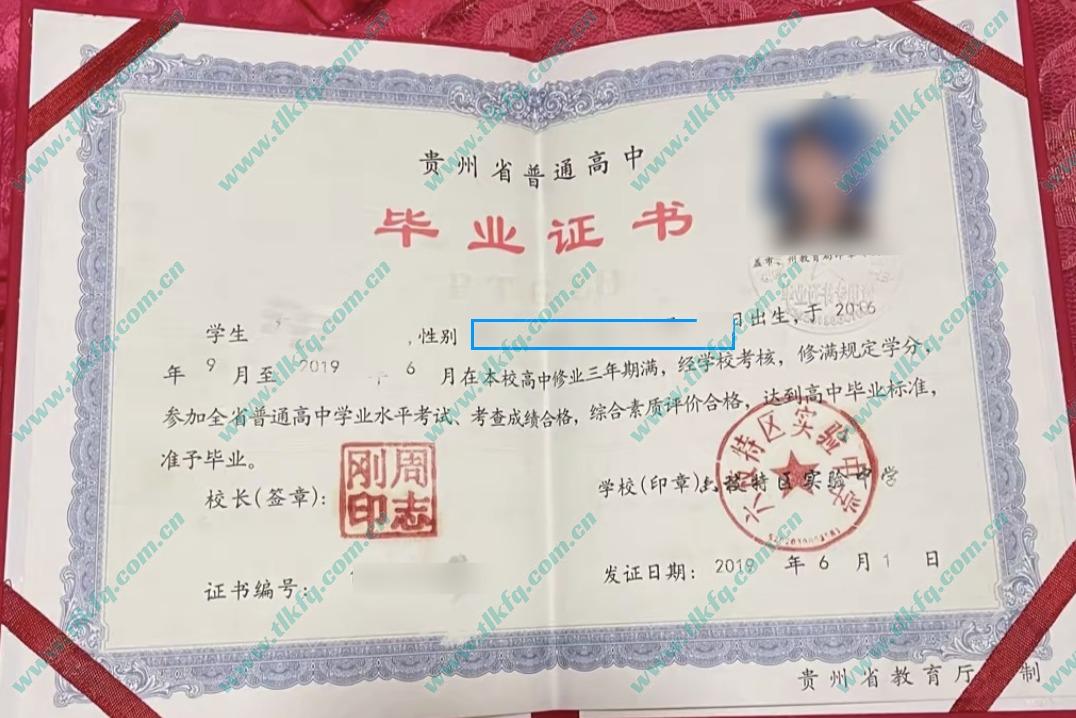 贵州省普通高中
毕业证书
盖市、州教育局印章
学生 ,性别 日出生,于 2016
年 9 月至 2019 年 6 月在本校高中修业三年期满,经学校考核,修满规定学分,
参加全省普通高中学业水平考试、考查成绩合格,综合素质评价合格,达到高中毕业标准,
准予毕业。
校长(签章):
周志刚印
学校(印章) 六枝特区实验中学
六枝特区实验中学
证书编号:
发证日期: 2019 年 6 月 1 日
贵州省教育厅 制
www.tlkfq.com.cn